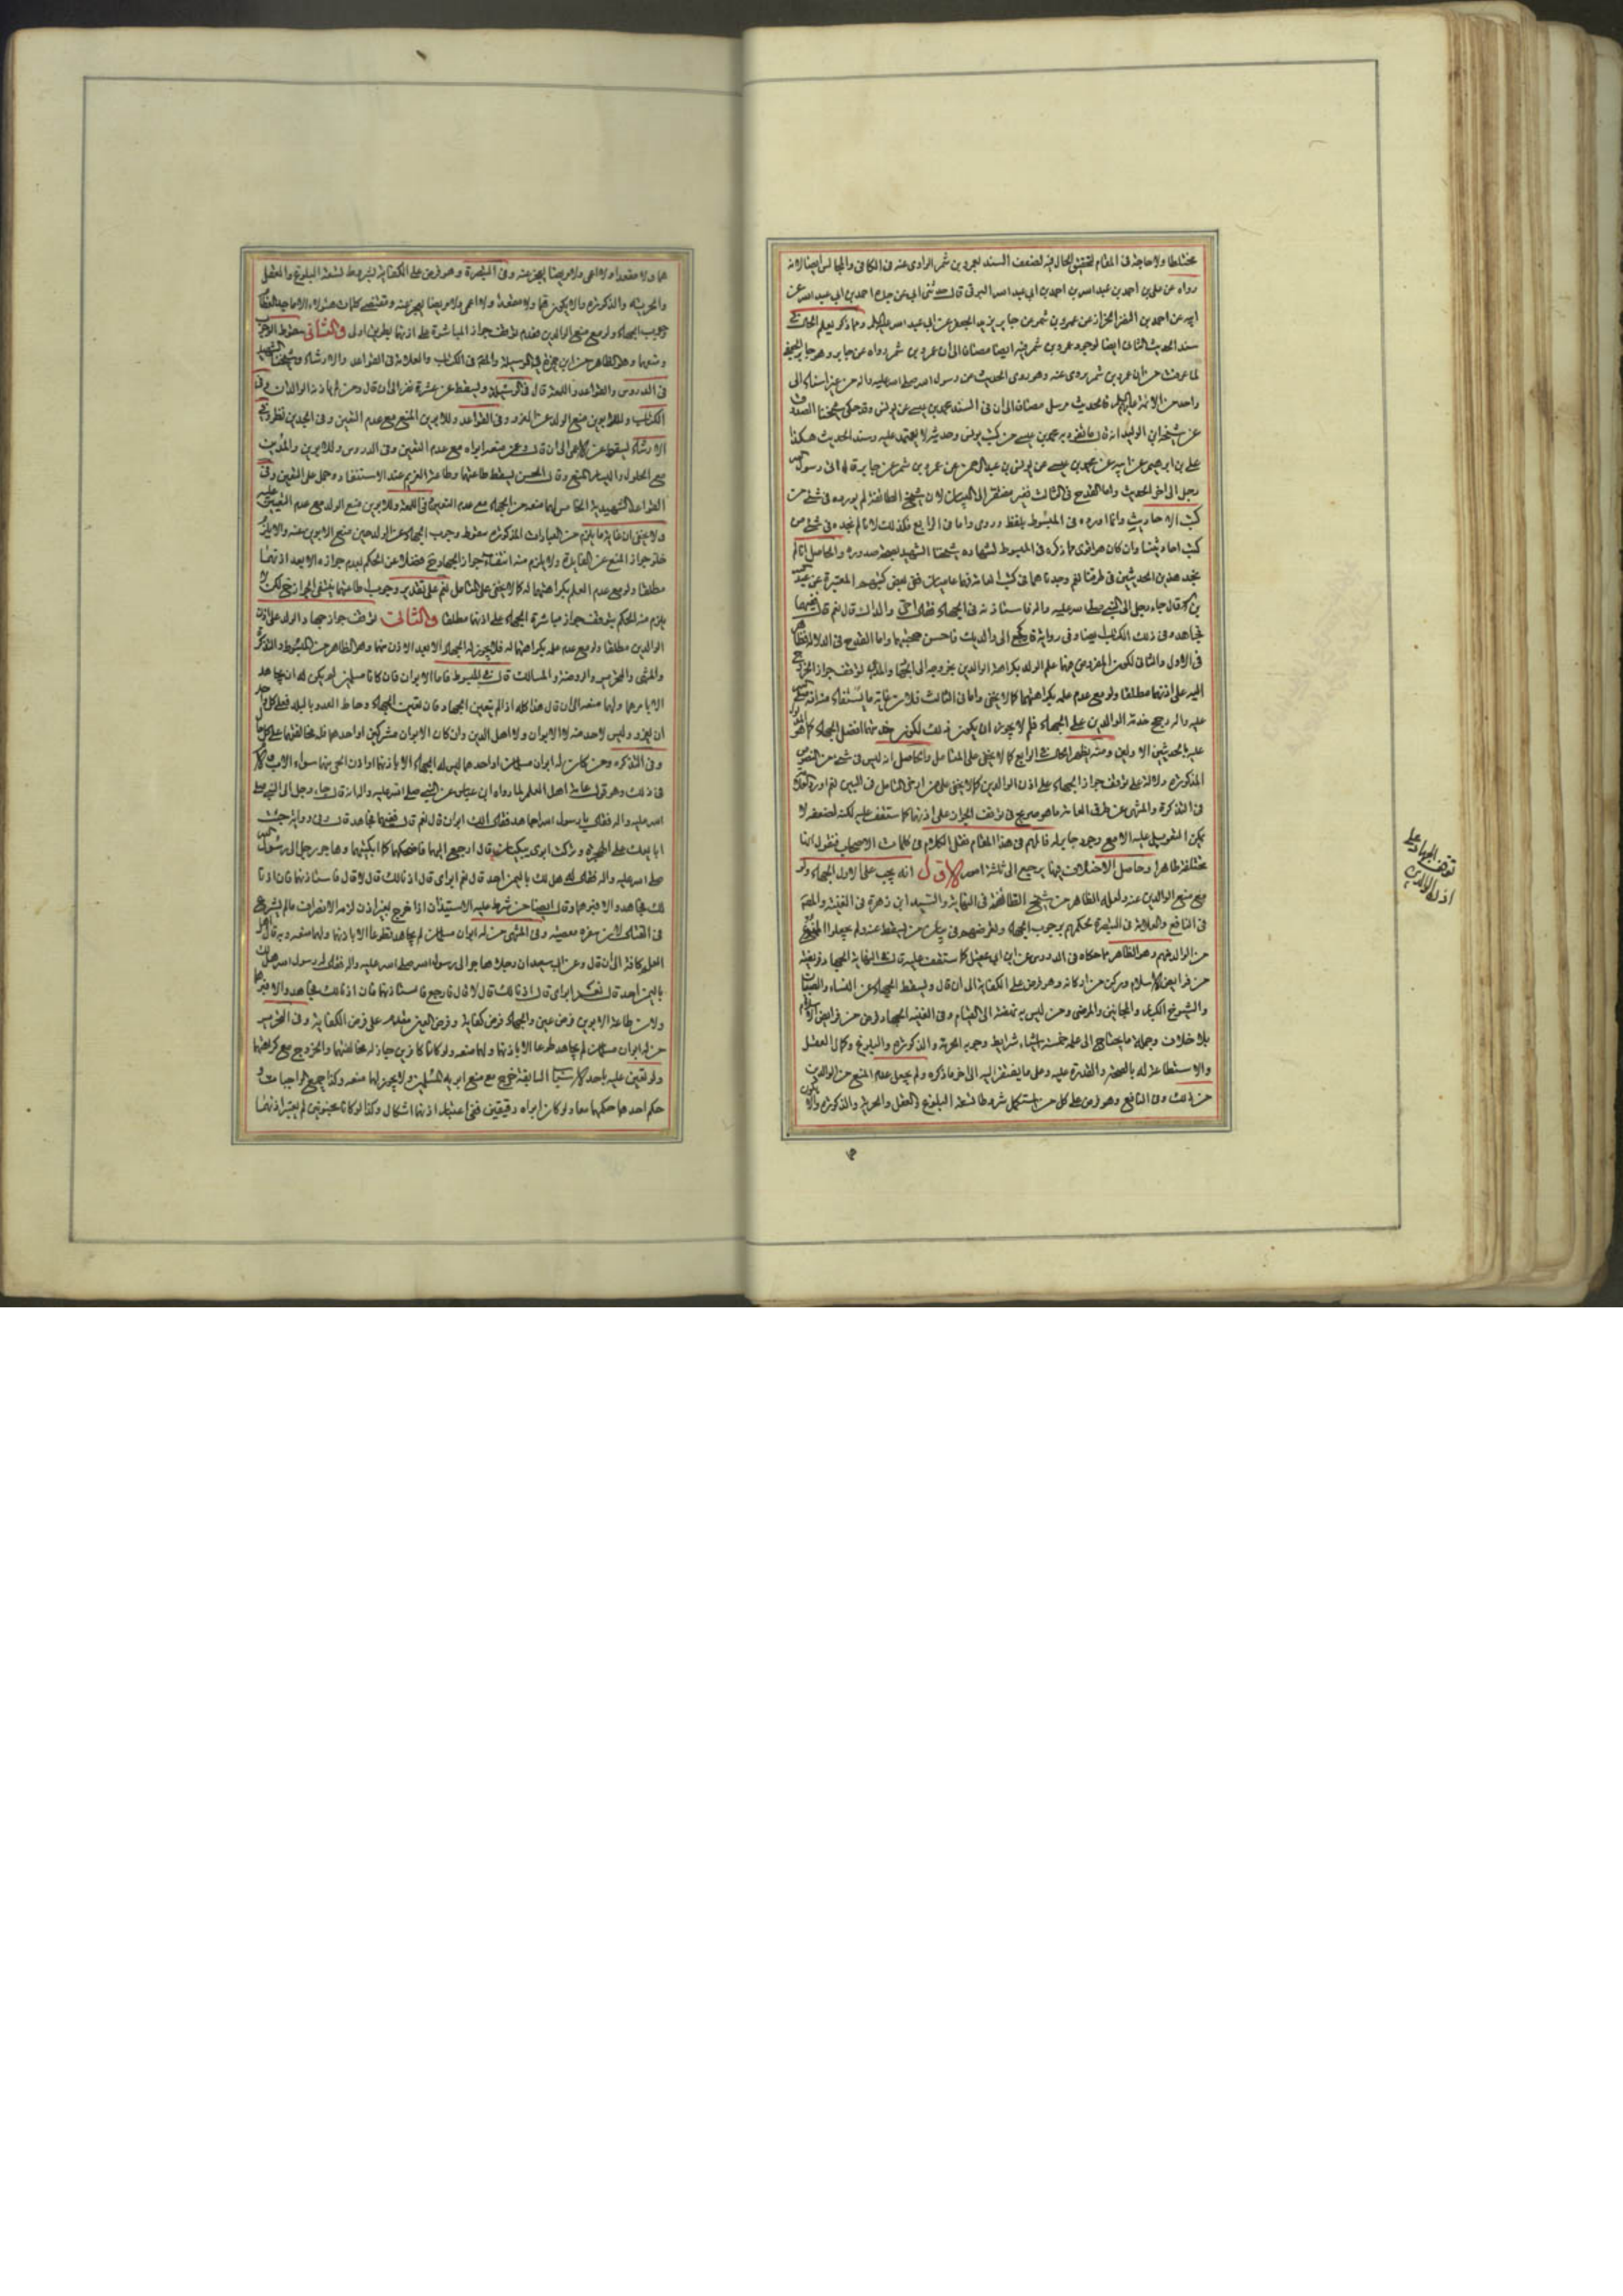 مختلطا ولا حاجة فى المقام لتحقيق الحال فيه لضعف السند لعمرو بن شمر الراوى عنه فى الكافى والمجالس ايضا لانه
رواه عن على بن احمد بن عبد الله بن احمد بن ابى عبد الله البرقى قال حدثنى ابى عن جده احمد بن ابى عبد الله عن
ابيه عن احمد بن النضر الخزاز عن عمرو بن شمر عن جابر بن يزيد الجعفى عن ابى عبد الله عليه السلم ومما ذكر يعلم الحال فى
سند الحديث الثانى ايضا لوجود عمرو بن شمر فيه ايضا مضافا الى ان عمرو بن شمر رواه عن جابر وهو جابر الجعفى
لما عرفت من ان عمرو بن شمر يروى عنه وهو روى الحديث عن رسول الله صلى الله عليه واله من غير اسناد الى
واحد من الائمة عليهم السلم فالحديث مرسل مضافا الى ان فى السند محمد بن عيسى عن يونس وقد حكى شيخنا الصدوق
عن شيخه ابن الوليد انه قال ما تفرد به محمد بن عيسى من كتب يونس وحديثه لا يعتمد عليه وسند الحديث هكذا
على بن ابراهيم عن ابيه عن محمد بن عيسى عن يونس بن عبد الرحمن عن عمرو بن شمر عن جابر قال اتى رسول الله
رجل الى اخر الحديث واما القدح فى الثالث فغير مفتقر الى البيان لان شيخ الطائفة لم يورده فى شئ من
كتب الاحاديث وانما اورده فى المبسوط بلفظ وروى واما فى الرابع فكذلك لانا لم نجده فى شئ من
كتب احاديثنا وان كان هو اقوى مما ذكره فى المبسوط لشهادة شيخنا الشهيد بصدوره والحاصل انا لم
نجد هذين الحديثين فى طرقنا نعم وجدناهما فى كتب العامة
قال جاء رجل الى النبى صلى الله عليه واله فاستاذنه فى الجهاد فقال احى والداك قال نعم قال ففيهما
فجاهد وفى ذلك الكتاب ايضا وفى رواية فارجع الى والديك فاحسن صحبتهما واما القدح فى الدلالة
فى الاول والثانى لكون المفروض فيهما علم الولد بكراهة الوالدين
اليه على اذنهما مطلقا ولو مع عدم علمه بكراهتهما كما لا يخفى واما فى الثالث فلان غاية ما يستفاد منه انه صلى الله
عليه واله رجح خدمة الوالدين على الجهاد فلم لا يجوز ان يكون ذلك لكون خدمتهما افضل الجهاد كما هو
الاولين ومنه يظهر الحال فى الرابع كما لا يخفى على المتامل والحاصل انه ليس فى شئ من النصوص
المذكورة دلالة على توقف جواز الجهاد على اذن الوالدين كما لا يخفى
فى التذكرة والمنتهى عن طرق العامة ما هو صريح فى توقف الجواز على اذنهما كما ستقف عليه لكنه لضعفه لا
يمكن التعويل عليه الا مع وجود جابر له فالمهم فى هذا المقام نقل الكلام فى كلمات الاصحاب فنقول انها
مختلفة ظاهرا وحاصل الاختلاف فيها يرجع الى ثلاثة امور الاول انه يجب على الاول الجهاد ولو
مع منع الوالدين عنه ولعله الظاهر من شيخ الطائفة فى النهاية والسيد ابن زهرة فى الغنية والمحقق
فى النافع والعلامة فى التبصرة لحكمهم بوجوب الجهاد
وهو الظاهر مما حكاه فى الدروس عن ابن ابى عقيل كما ستقف عليه قال فى النهاية الجهاد فريضة
من فرايض الاسلام وركن من اركانه وهو فرض على الكفاية الى ان قال ويسقط الجهاد عن النساء والصبيان
والشيوخ الكبار والمجانين والمرضى ومن ليس به نهضة الى القيام وفى الغنية الجهاد فرض من فرايض الاسلام
بلا خلاف وجملة ما يحتاج الى علمه خمسة اشياء شرايط وجوبه الحرية والذكورة والبلوغ وكمال العقل
والاستطاعة له بالصحة والقدرة عليه وعلى ما يفتقر اليه الى اخر ما ذكره ولم يجعل عدم المنع من الوالدين
من ذلك وفى النافع وهو فرض على كل من استكمل شروطا ثمانية البلوغ والعقل والحرية والذكورة والا يكون
توقف الجهاد على
اذن الوالدين
هما ولا مقعدا ولا اعمى ولا مريضا يعجز عنه وفى التبصرة وهو فرض على الكفاية بشروط تسعة البلوغ والعقل
والحرية والذكورة والا يكون هما ولا مقعدا ولا اعمى ولا مريضا يعجز عنه ومقتضى كلمات هؤلاء الاماجد
وجوب الجهاد ولو مع منع الوالدين فعدم توقف جواز المباشرة على اذنهما بطريق اولى والثانى سقوط الوجوب
بمنعهما وهو الظاهر من ابن حمزة فى الوسيلة والمحقق فى الكتاب والعلامة فى القواعد والارشاد وشيخنا الشهيد
فى الدروس والقواعد واللمعة قال فى الوسيلة ويسقط عن عشرة نفر الى ان قال ومن لم ياذن له الوالدان وفى
الكتاب وللابوين منع الولد عن الغزو وفى القواعد وللابوين المنع مع عدم التعين وفى الجدين نظر وفى
الارشاد ليسقط عن الاعمى الى ان قال وعمن منعه ابواه مع عدم التعين وفى الدروس وللابوين والمدين
مع الحلول واليسار المنع وقال الحسن يسقط طاعتهما وطاعة الغريم عند الاستنفار وحمل على التعين وفى
القواعد الشهيدية الخامس لهما منعه من الجهاد مع عدم التعين وفى اللمعة وللابوين منع الولد مع عدم التعين
ولا يخفى ان غاية ما يلزم من العبارات المذكورة سقوط وجوب الجهاد عن الولد حين منع الابوين عنه
جواز المنع عن الفائدة ولا يلزم منه انتفاء جواز الجهاد ح فضلا عن الحكم بعدم جوازه الا بعد اذنهما
مطلقا ولو مع عدم العلم بكراهتهما له كما لا يخفى على المتامل نعم على تقدير وجوب اطاعتهما ينتفى الجواز ح لكن لا
يلزم منه الحكم بتوقف جواز مباشرة الجهاد على اذنهما مطلقا والثالث توقف جواز جهاد الولد على اذن
الوالدين مطلقا ولو مع عدم علمه بكراهتهما له فلا يجوز له الجهاد الا بعد الاذن منهما وهو الظاهر من المبسوط والتذكرة
والمنتهى والتحرير والروضة والمسالك قال فى المبسوط فاما الابوان فان كانا مسلمين لم يكن له ان يجاهد
الا بامرهما ولهما منعه الى ان قال هذا كله اذا لم يتعين الجهاد فان تعين الجهاد واحاط العدو بالبلد فعلى كل احد
ان يغزو وليس لاحد منعه لا الابوان ولا اهل الدين وان كان الابوان مشركين او احدهما فله مخالفتهما على كل حال
وفى التذكرة ومن كان له ابوان مسلمان او احدهما ليس له الجهاد الا باذنهما او اذن الحى منهما سواء
فى ذلك وهو قول عامة اهل العلم لما رواه ابن عباس عن النبى صلى الله عليه واله انه قال جاء رجل الى النبى صلى
الله عليه واله فقال يا رسول الله اجاهد فقال الك ابوان قال نعم قال ففيهما فجاهد قال وفى رواية جئت
ابايعك على الهجرة وتركت ابوى يبكيان قال ارجع اليهما فاضحكهما كما ابكيتهما وهاجر رجل الى رسول الله
صلى الله عليه واله فقال له هل لك باليمن احد قال نعم ابواى قال اذنا لك قال لا قال فاستاذنهما فان اذنا
لك فجاهد والا فبرهما وقال ايضا من شرط عليه الاستيذان اذا خرج بغير اذن لزمه الانصراف ما لم يشرع
فى القتال لان سفره معصية وفى المنتهى من له ابوان مسلمان لم يجاهد تطوعا الا باذنهما ولهما منعه وبه قال اهل
العلم كافة الى ان قال وعن ابى سعيد ان رجلا هاجر الى رسول الله صلى الله عليه واله فقال له رسول الله هل لك
باليمن احد قال نعم ابواى قال اذنا لك قال لا قال فارجع فاستاذنهما فان اذنا لك فجاهد والا فبرهما
ولان طاعة الابوين فرض عين والجهاد فرض كفاية وفرض العين مقدم على فرض الكفاية وفى التحرير
من له ابوان مسلمان لم يجاهد تطوعا الا باذنهما ولهما منعه ولو كانا كافرين جاز له مخالفتهما والخروج مع كراهتهما
ولو تعين عليه باحد الاسباب السابقة خرج مع منع ابويه المسلمين ولا يجوز لهما منعه وكذا جميع الواجبات و
حكم احدهما حكمهما معا ولو كان ابواه رقيقين ففى اعتبار اذنهما اشكال وكذا لو كانا مجنونين لم يعتبر اذنهما